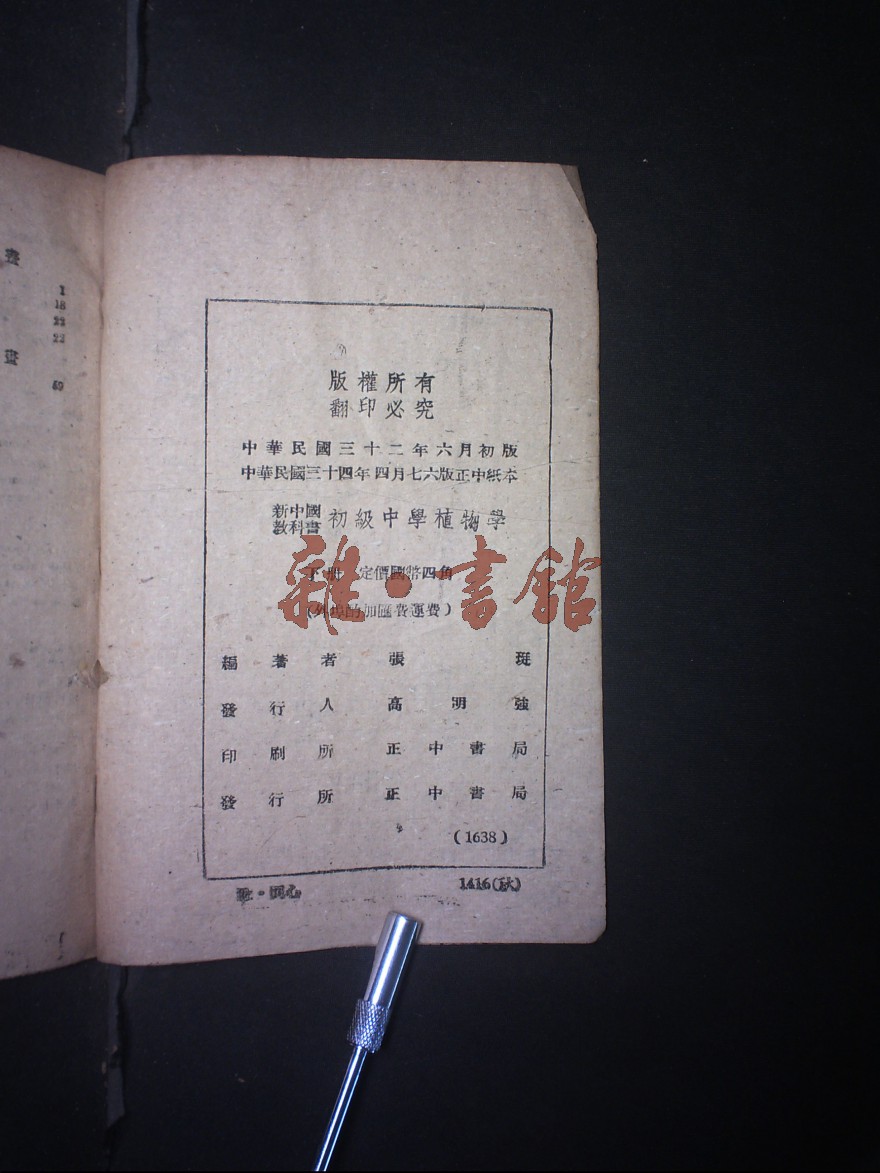 畫
1
18
22
22
畫
版權所有
翻印必究
中華民國三十二年六月初版
中華民國三十四年四月七六版正中紙本
新中國
教科書
初級中學植物學
下册 定價國幣四角
(外埠酌加匯費運費)
編著者 張 珽
發行人 高明強
印刷所 正中書局
發行所 正中書局
(1638)
1416(訣)
雜·書館